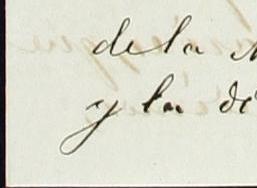 de la
y la de